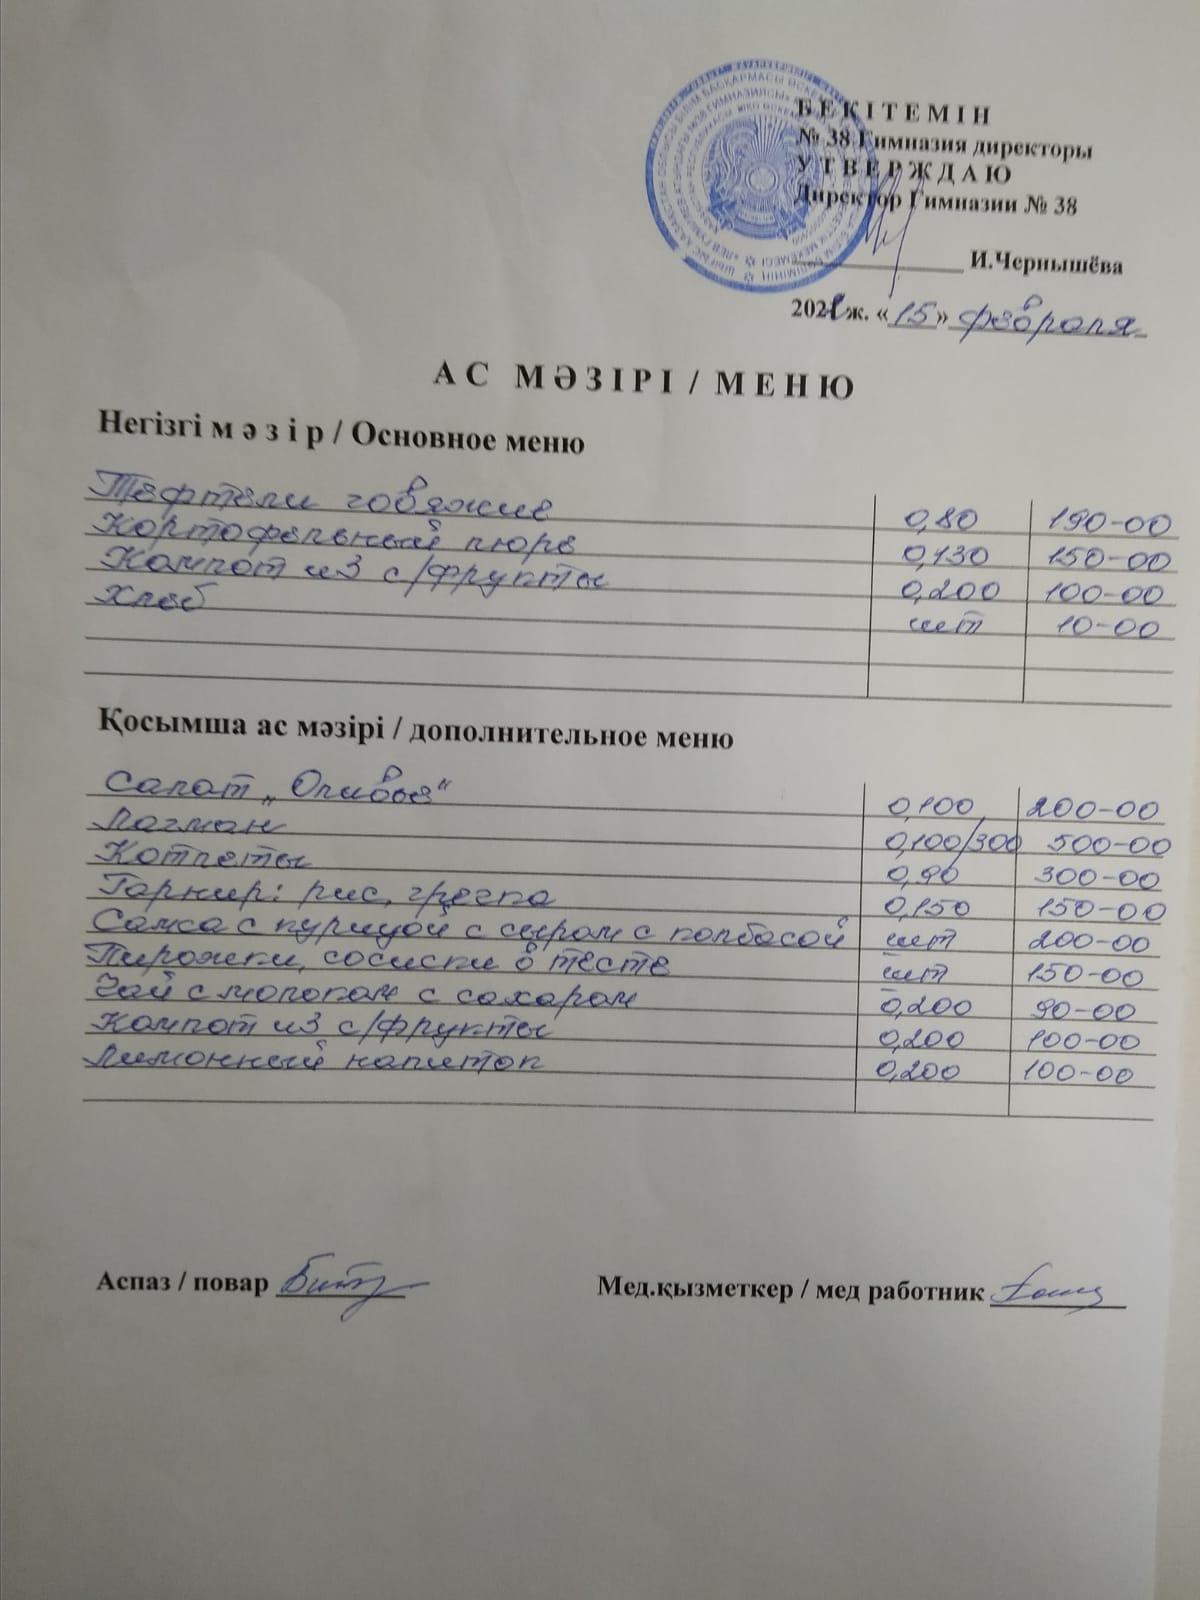 БЕКІТЕМІН
№ 38 Гимназия директоры
УТВЕРЖДАЮ
Директор Гимназии № 38
И.Чернышёва
ж. «15» февраля
АС МӘЗІРІ / МЕНЮ
Негізгі мәзір / Основное меню
Тефтели говяжие 0,80 190-00
Картофельный пюре 0,130 150-00
Компот из с/фрукты 0,200 100-00
Хлеб шт 10-00
Қосымша ас мәзірі / дополнительное меню
Салат „Оливье“ 0,100 200-00
Лагман 0,100/300 500-00
Котлеты 0,90 300-00
Гарнир: рис, гречка 0,150 150-00
Самса с курицой с сыром с колбасой шт 200-00
Пирожки, сосиски в тесте шт 150-00
Чай с молоком с сахаром 0,200 90-00
Компот из с/фрукты 0,200 100-00
Лимонный напиток 0,200 100-00
Аспаз / повар
Мед.қызметкер / мед работник